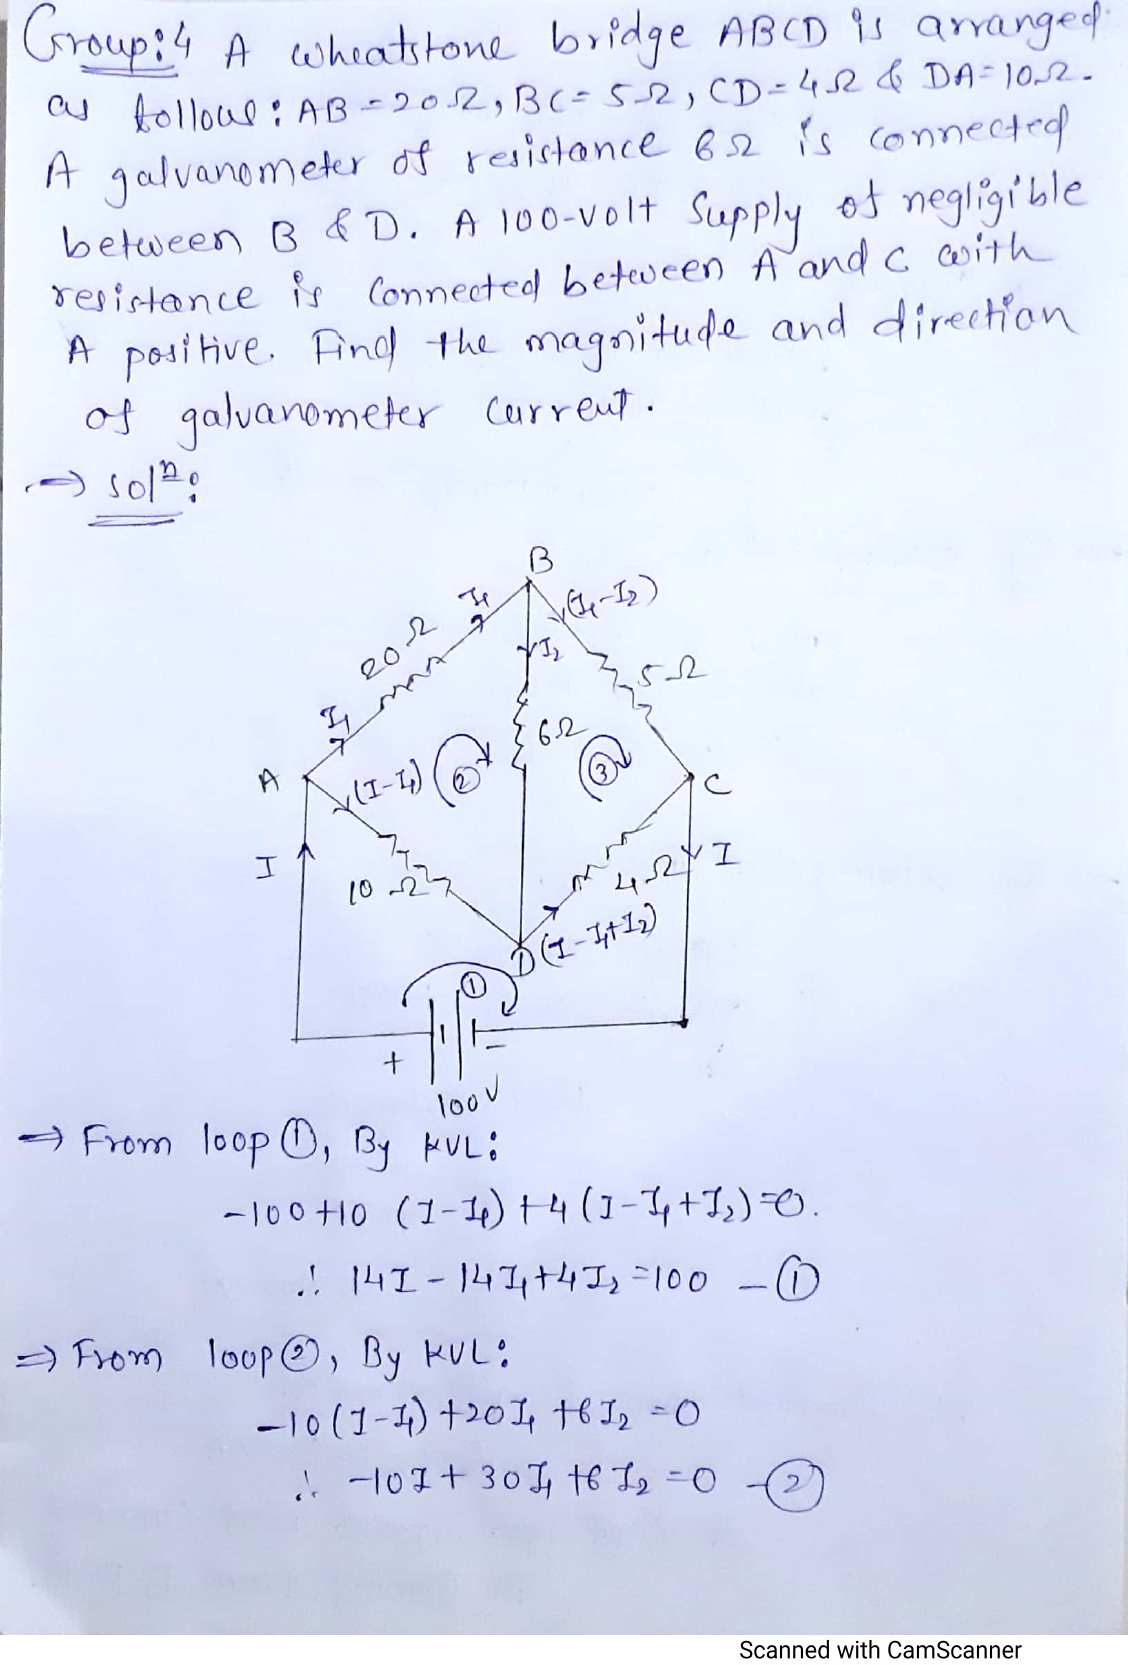 Group:4 A wheatstone bridge ABCD is arranged
as follows: AB=20Ω, BC=5Ω, CD=4Ω & DA=10Ω.
A galvanometer of resistance 6Ω is connected
between B & D. A 100-volt supply of negligible
resistance is connected between A and C with
A positive. Find the magnitude and direction
of galvanometer current.
→ solⁿ:
B
I₁
(I₁-I₂)
20Ω
I₂
5Ω
I₁
6Ω
A
(I-I₁)
②
③
C
I
10Ω
4Ω
I
D
(I-I₁+I₂)
①
+
-
100V
⇒ From loop ①, By KVL:
-100+10 (I-I₁)+4(I-I₁+I₂)=0.
∴ 14I-14I₁+4I₂=100 -①
⇒ From loop②, By KVL:
-10(I-I₁)+20I₁+6I₂=0
∴ -10I+30I₁+6I₂=0 -②
Scanned with CamScanner